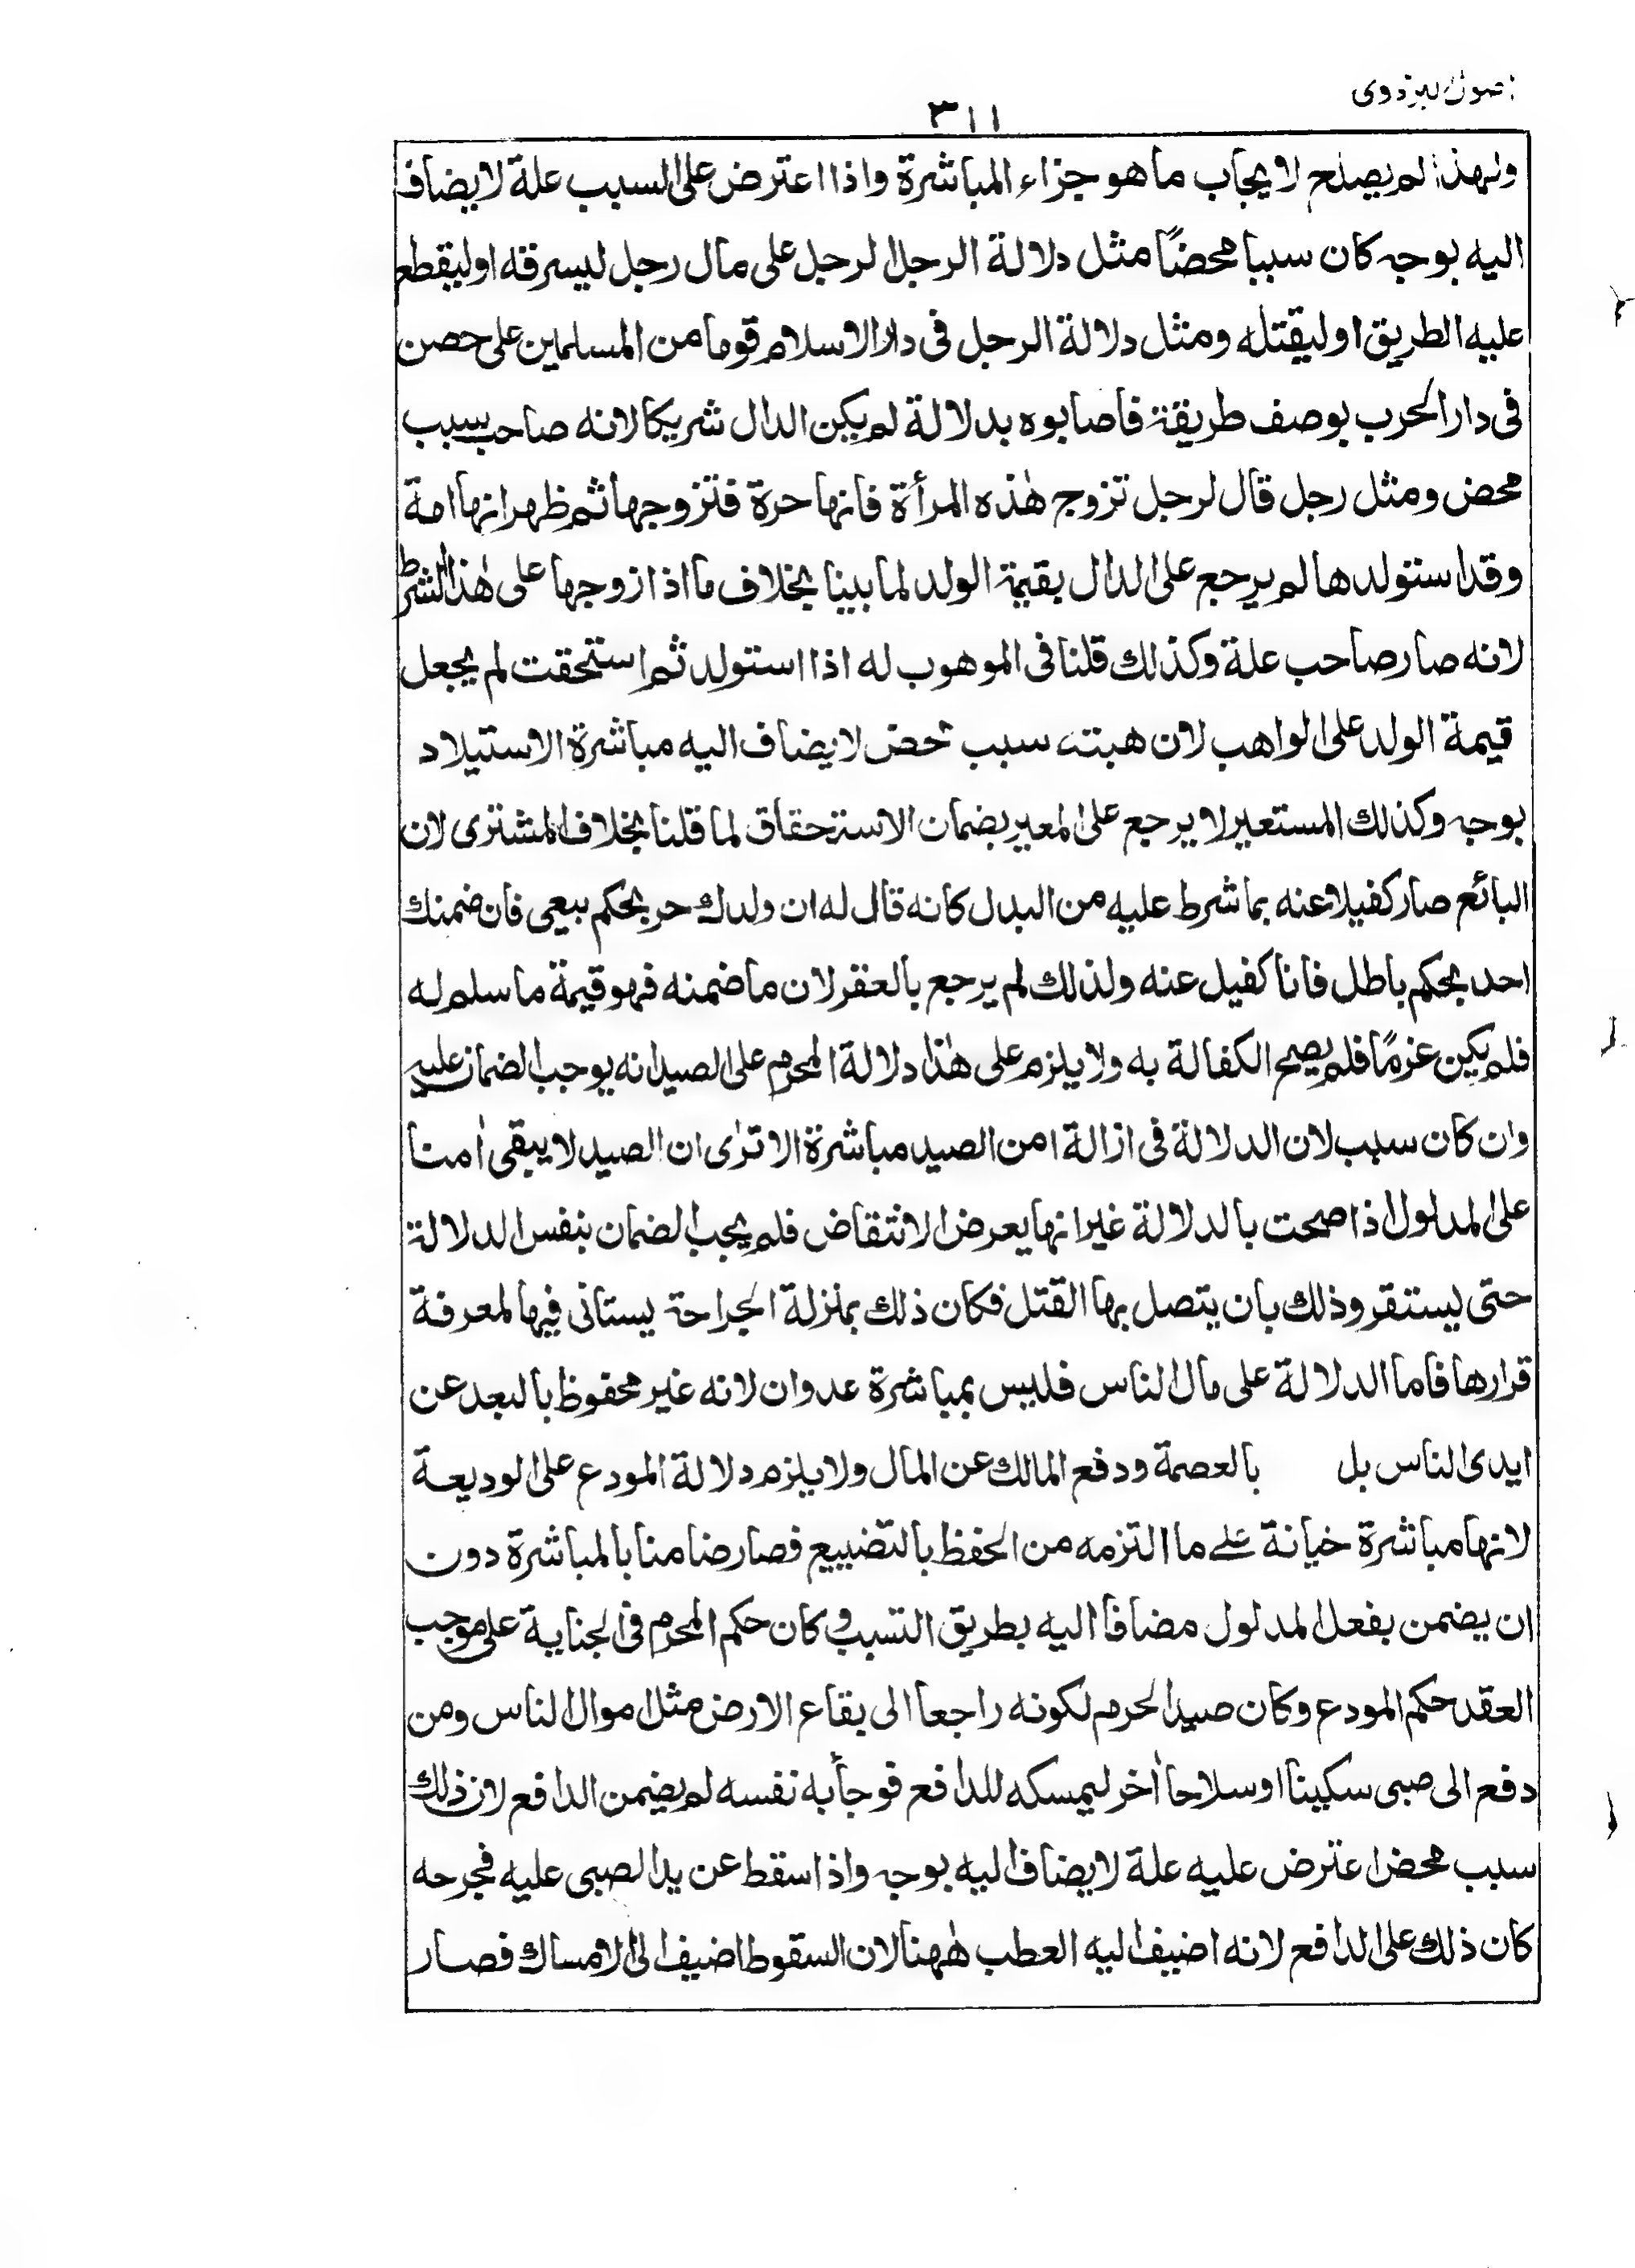 اصول بزدوی
٣١١
ولهذا لم يصلح لايجاب ما هو جزاء المباشرة واذا اعترض على السبب علة لا يضاف
اليه بوجه كان سببا محضًا مثل دلالة الرجل الرجل على مال رجل ليسرقه او ليقطع
عليه الطريق او ليقتله ومثل دلالة الرجل فى دار الاسلام قوما من المسلمين على حصن
فى دار الحرب بوصف طريقة فاصابوه بدلالة لم يكن الدال شريكا لانه صاحب سبب
محض ومثل رجل قال لرجل تزوج هٰذه المرأة فانها حرة فتزوجها ثم ظهر انها امة
وقد استولدها لم يرجع على الدال بقيمة الولد لما بينا بخلاف ما اذا زوجها على هٰذا الشرط
لانه صار صاحب علة وكذلك قلنا فى الموهوب له اذا استولد ثم استحقت لم يجعل
قيمة الولد على الواهب لان هبته سبب محض لا يضاف اليه مباشرة الاستيلاد
بوجه وكذلك المستعير لا يرجع على المعير بضمان الاستحقاق لما قلنا بخلاف المشترى لان
البائع صار كفيلا عنه بما شرط عليه من البدل كانه قال له ان ولدك حر بحكم بيعى فان ضمنك
احد بحكم باطل فانا كفيل عنه ولذلك لم يرجع بالعقر لان ما ضمنه فهو قيمة ما سلم له
فلم يكن عزمًا فلم يصح الكفالة به ولا يلزم على هٰذا دلالة المحرم على الصيد انه يوجب الضمان عليه
وان كان سبب لان الدلالة فى ازالة امن الصيد مباشرة الا ترٰى ان الصيد لا يبقى اٰمنا
على المدلول اذا صحت بالدلالة غير انها يعرض الانتقاض فلم يجب الضمان بنفس الدلالة
حتى يستقر وذلك بان يتصل بها القتل فكان ذلك بمنزلة الجراحة يستانى فيها لمعرفة
قرارها فاما الدلالة على مال الناس فليس بمباشرة عدوان لانه غير محفوظ بالبعد عن
ايدى الناس بل بالعصمة ودفع المالك عن المال ولا يلزم دلالة المودع على الوديعة
لانها مباشرة خيانة على ما التزمه من الحفظ بالتضييع فصار ضامنا بالمباشرة دون
ان يضمن بفعل المدلول مضافا اليه بطريق التسبب وكان حكم المحرم فى الجناية على موجب
العقد حكم المودع وكان صيد الحرم لكونه راجعا الى بقاع الارض مثل اموال الناس ومن
دفع الى صبى سكينا او سلاحا اٰخر ليمسكه للدافع فوجأ به نفسه لم يضمن الدافع لان ذلك
سبب محض اعترض عليه علة لا يضاف اليه بوجه واذا سقط عن يد الصبى عليه فجرحه
كان ذلك على الدافع لانه اضيف اليه العطب هٰهنا لان السقوط اضيف الى الامساك فصار